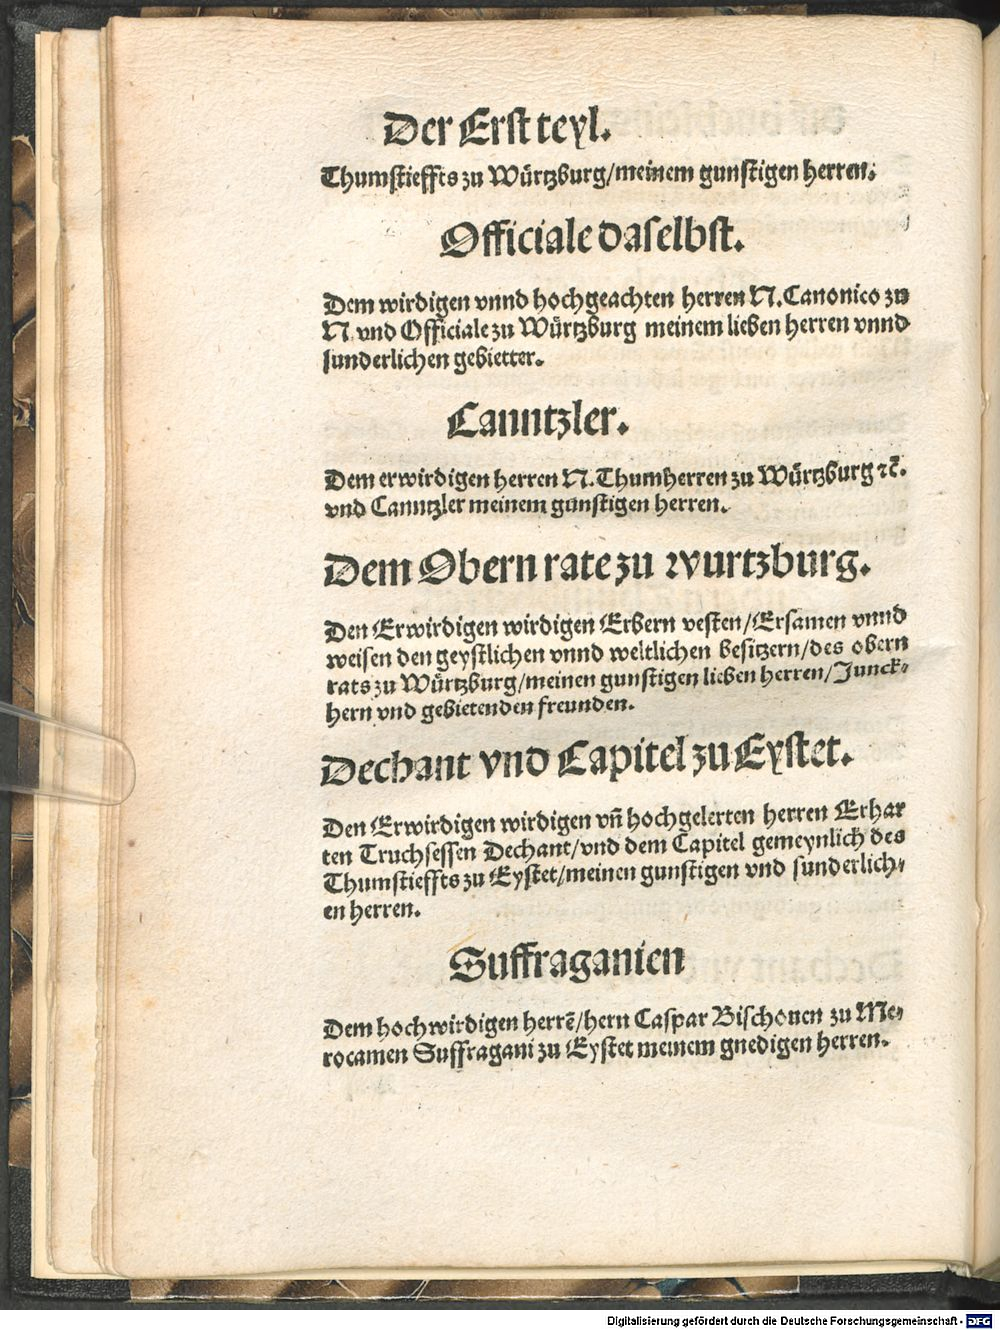 Der Erst teyl.
Thumstieffts zu Würtzburg/meinem gunstigen herren.
Officiale daselbst.
Dem wirdigen vnnd hochgeachten herren N. Canonico zu
N. vnd Officiale zu Würtzburg meinem lieben herren vnnd
sunderlichen gebietter.
Canntzler.
Dem erwirdigen herren N. Thumherren zu Würtzburg ꝛc̄.
vnd Canntzler meinem gunstigen herren.
Dem Obern rate zu wurtzburg.
Den Erwirdigen wirdigen Erbern vesten/Ersamen vnnd
weisen den geystlichen vnnd weltlichen besitzern/des obern
rats zu Würtzburg/meinen gunstigen lieben herren/Junck⸗
hern vnd gebietenden freunden.
Dechant vnd Capitel zu Eystet.
Den Erwirdigen wirdigen vn̄ hochgelerten herren Erhar
ten Truchsessen Dechant/vnd dem Capitel gemeynlich des
Thumstieffts zu Eystet/meinen gunstigen vnd sunderlich⸗
en herren.
Suffraganien
Dem hochwirdigen herrē/hern Caspar Bischouen zu Me⸗
rocamen Suffragani zu Eystet meinem gnedigen herren.
Digitalisierung gefördert durch die Deutsche Forschungsgemeinschaft - DFG